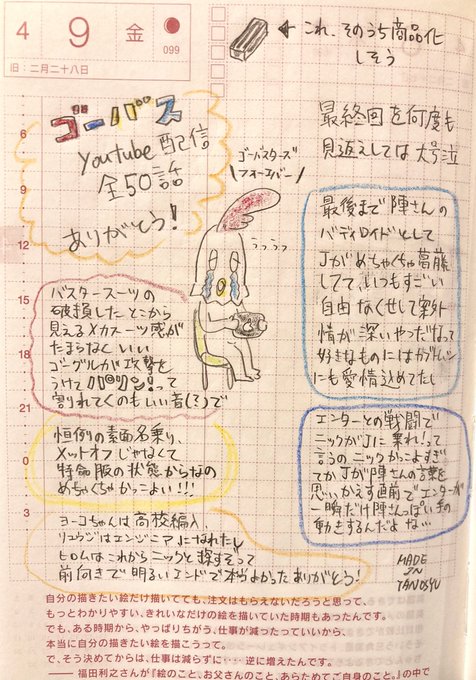 4 9 金
099
旧:二月二十八日
これ、そのうち商品化
しそう
6
9
12
15
18
21
0
3
ゴーバス
YouTube配信
全50話
ありがとう!
最終回を何度も
見返えしては大号泣
ゴーバスターズ
フォーエバー
うっうっ
最後まで陣さんの
バディロイドとして
Jがめちゃくちゃ葛藤
してて、いつもすごい
自由なくせして案外
情が深いやつだなって
好きなものにはカブトムシ
にも愛情込めてたし
バスタースーツの
破損したとこから
見えるメカスーツ感が
たまらなくいい
ゴーグルが攻撃を
うけてパリン!って
割れてくのもいい音(?)で
恒例の素面名乗り、
メットオフじゃなくて
特命服の状態からなの
めちゃくちゃかっこよい!!!
エンターとの戦闘で
ニックがJに乗れ!って
言うのニックかっこよすぎ
てかJが陣さんの言葉を
思いかえす直前でエンターが
一瞬だけ陣さんっぽい手の
動きするんだよね…
ヨーコちゃんは高校編入、
リュウジはエンジニアになれたし
ヒロムはこれからニックと探すぞって
前向きで明るいエンドで本当よかったありがとう!
MADE
IN
TANOSYU
自分の描きたい絵だけ描いてても、注文はもらえないだろうと思って、
もっとわかりやすい、きれいなだけの絵を描いていた時期もあったんです。
でも、ある時期から、やっぱりちがう、仕事が減ったっていいから、
本当に自分の描きたい絵を描こうって。
で、そう決めてからは、仕事は減らずに・・・逆に増えたんです。
── 福田利之さんが『絵のこと、お父さんのこと、あらためてご自身のこと。』の中で